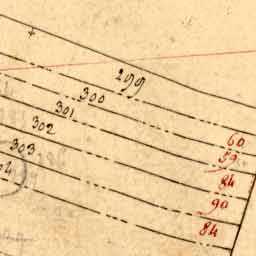 299
300
301
302
303
60
59
84
90
84